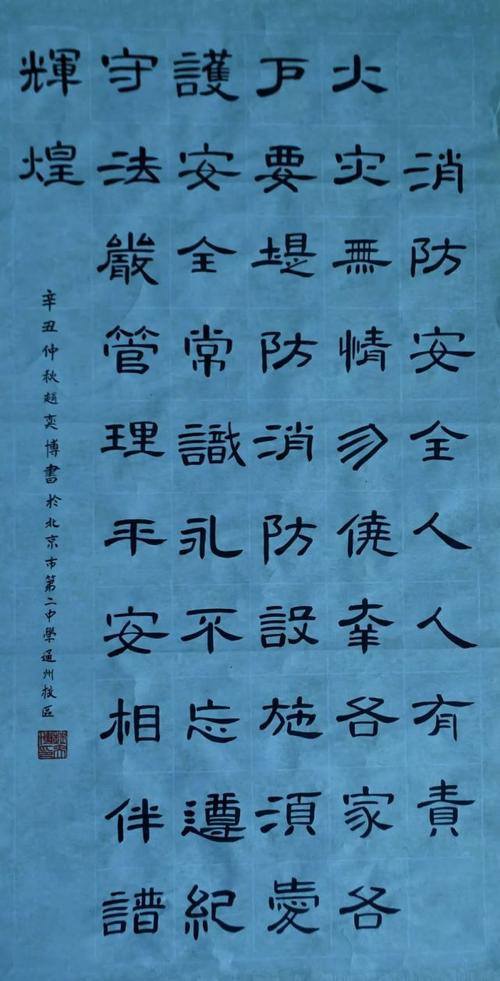 消防安全人人有責
火灾無情勿僥幸各家各
户要堤防消防設施須愛
護安全常識永不忘遵紀
守法嚴管理平安相伴譜
輝煌
辛丑仲秋趙奕博書於北京市第二中學通州校區